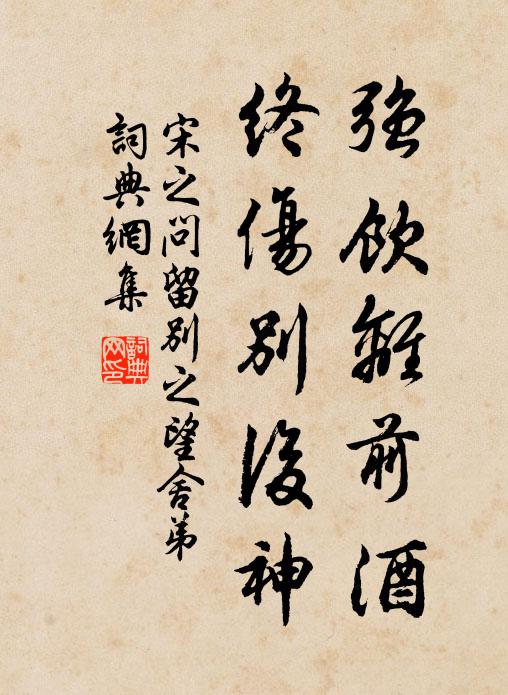 強飲離前酒
終傷別後神
宋之問留別之望舍弟
詞典網集
詞典網印